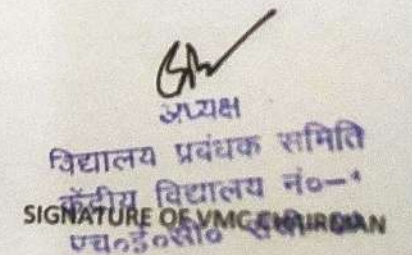 अध्यक्ष
विद्यालय प्रबंधक समिति
केंद्रीय विद्यालय नं०-१
SIGNATURE OF VMC CHAIRDIAN
एच०ई०सी०